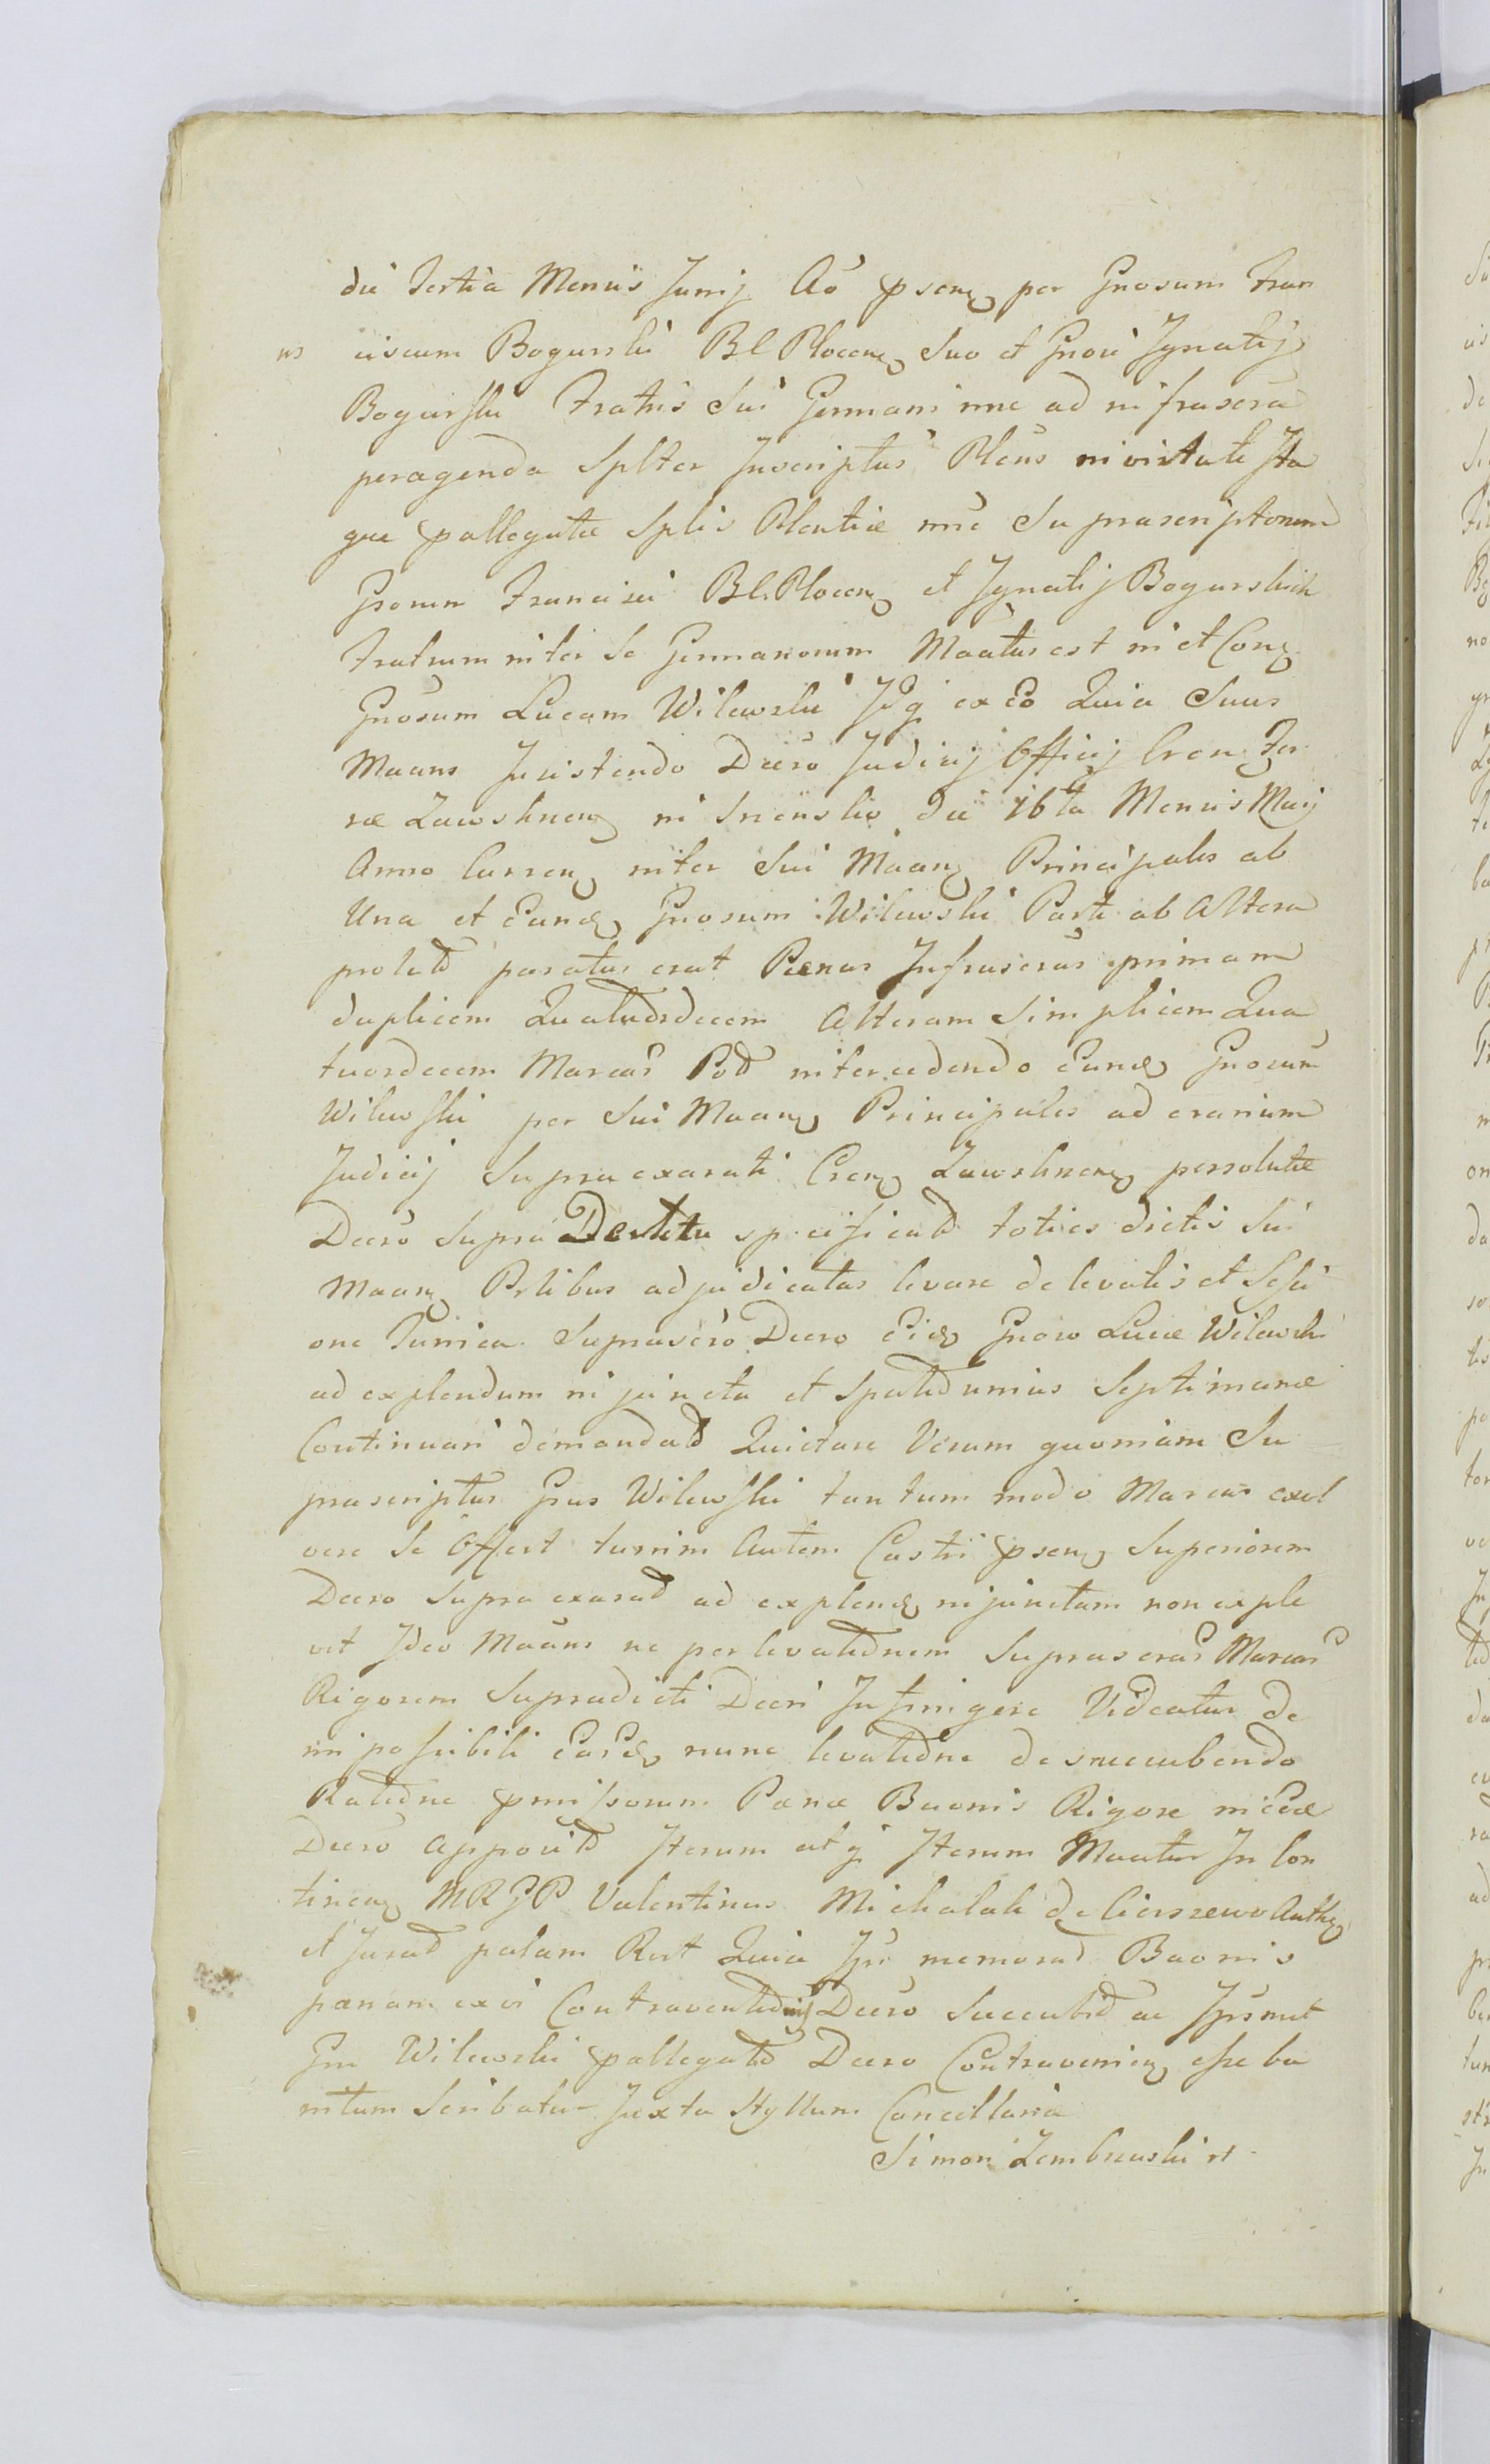 die Tertia Mensis Junij Ao psenq per Gnosum Fran
ns ciscum Bogurski BL Plocenq Suo et Gnosi Ignatij
Bogurski Fratris Sui Germani nne ad infrascra
peragenda Splter Inscriptus Plenus in virtute Ita
que pallegatæ Splis Plentiæ nne Suprascriptorum
Gsorum Francisci BL Plocenq et Ignatij Bogurskich
Fratrum inter Se Germanorum Maatus est in et Conq
Gnosum Lucam Wilewski Idq ex Eo Quia Suus
Maans Insistendo Decro Judicij Officij Cren Ter
ræ Zawskrnenq in Srensko die 16ta Mensis Maij
Anno Currenq inter Sui Maanq Principales ab
Una et Eundq Gnosum Wilewski Parte ab Altera
prolato paratus erat Pænas Infrascras primam
duplicem Quatuordecem Alteram Simplicem Qua
tuordecem Marcas Pol intercedendo Eundq Gnosum
Wilewski per Sui Maanq Principales ad erarium
Judicij Supra exarati Crenq Zawskrnenq persolutæ
Decro Supra specificato toties dictis Sui
Maanq Prlibus adjudicatas levare de levatis et Sessi
one Turrica Suprascro Decro Eidq Gnoso Lucæ Wilewski
ad explendum injuncta et Spatio unius Septimanæ
Continuari demandato Quietare Verum quoniam Su
prascriptus Gsus Wilewski tantum modo Marcas exol
vere Se Offert turrim Autem Castri psenq Superiorem
Decro Supra exarato ad explendq injunctam non exple
vit Ideo Maans ne per levationem Suprascras Marcas
Rigorem Supradicti Decri Infringere Videatur de
impossibili Easdq nunc levatione de succubendo
Ratione pmissorum Pænæ Baonis Rigore in Eoæ
Decro Apposito Iterum atq Iterum Maatur In Con
tinenq MRGP Valentinus Michalak de Cierszewo Authq
et Jurato palam Rect Quia Ipse memorato Baonis
pænam exvi Contraventionis Decro Succubito ac Ipsmet
Gn Wilewski pallegato Decro Contraveninq esse ba
nitum Scribatur Juxta Styllum Cancellariæ
Simon Zembrzuski rt